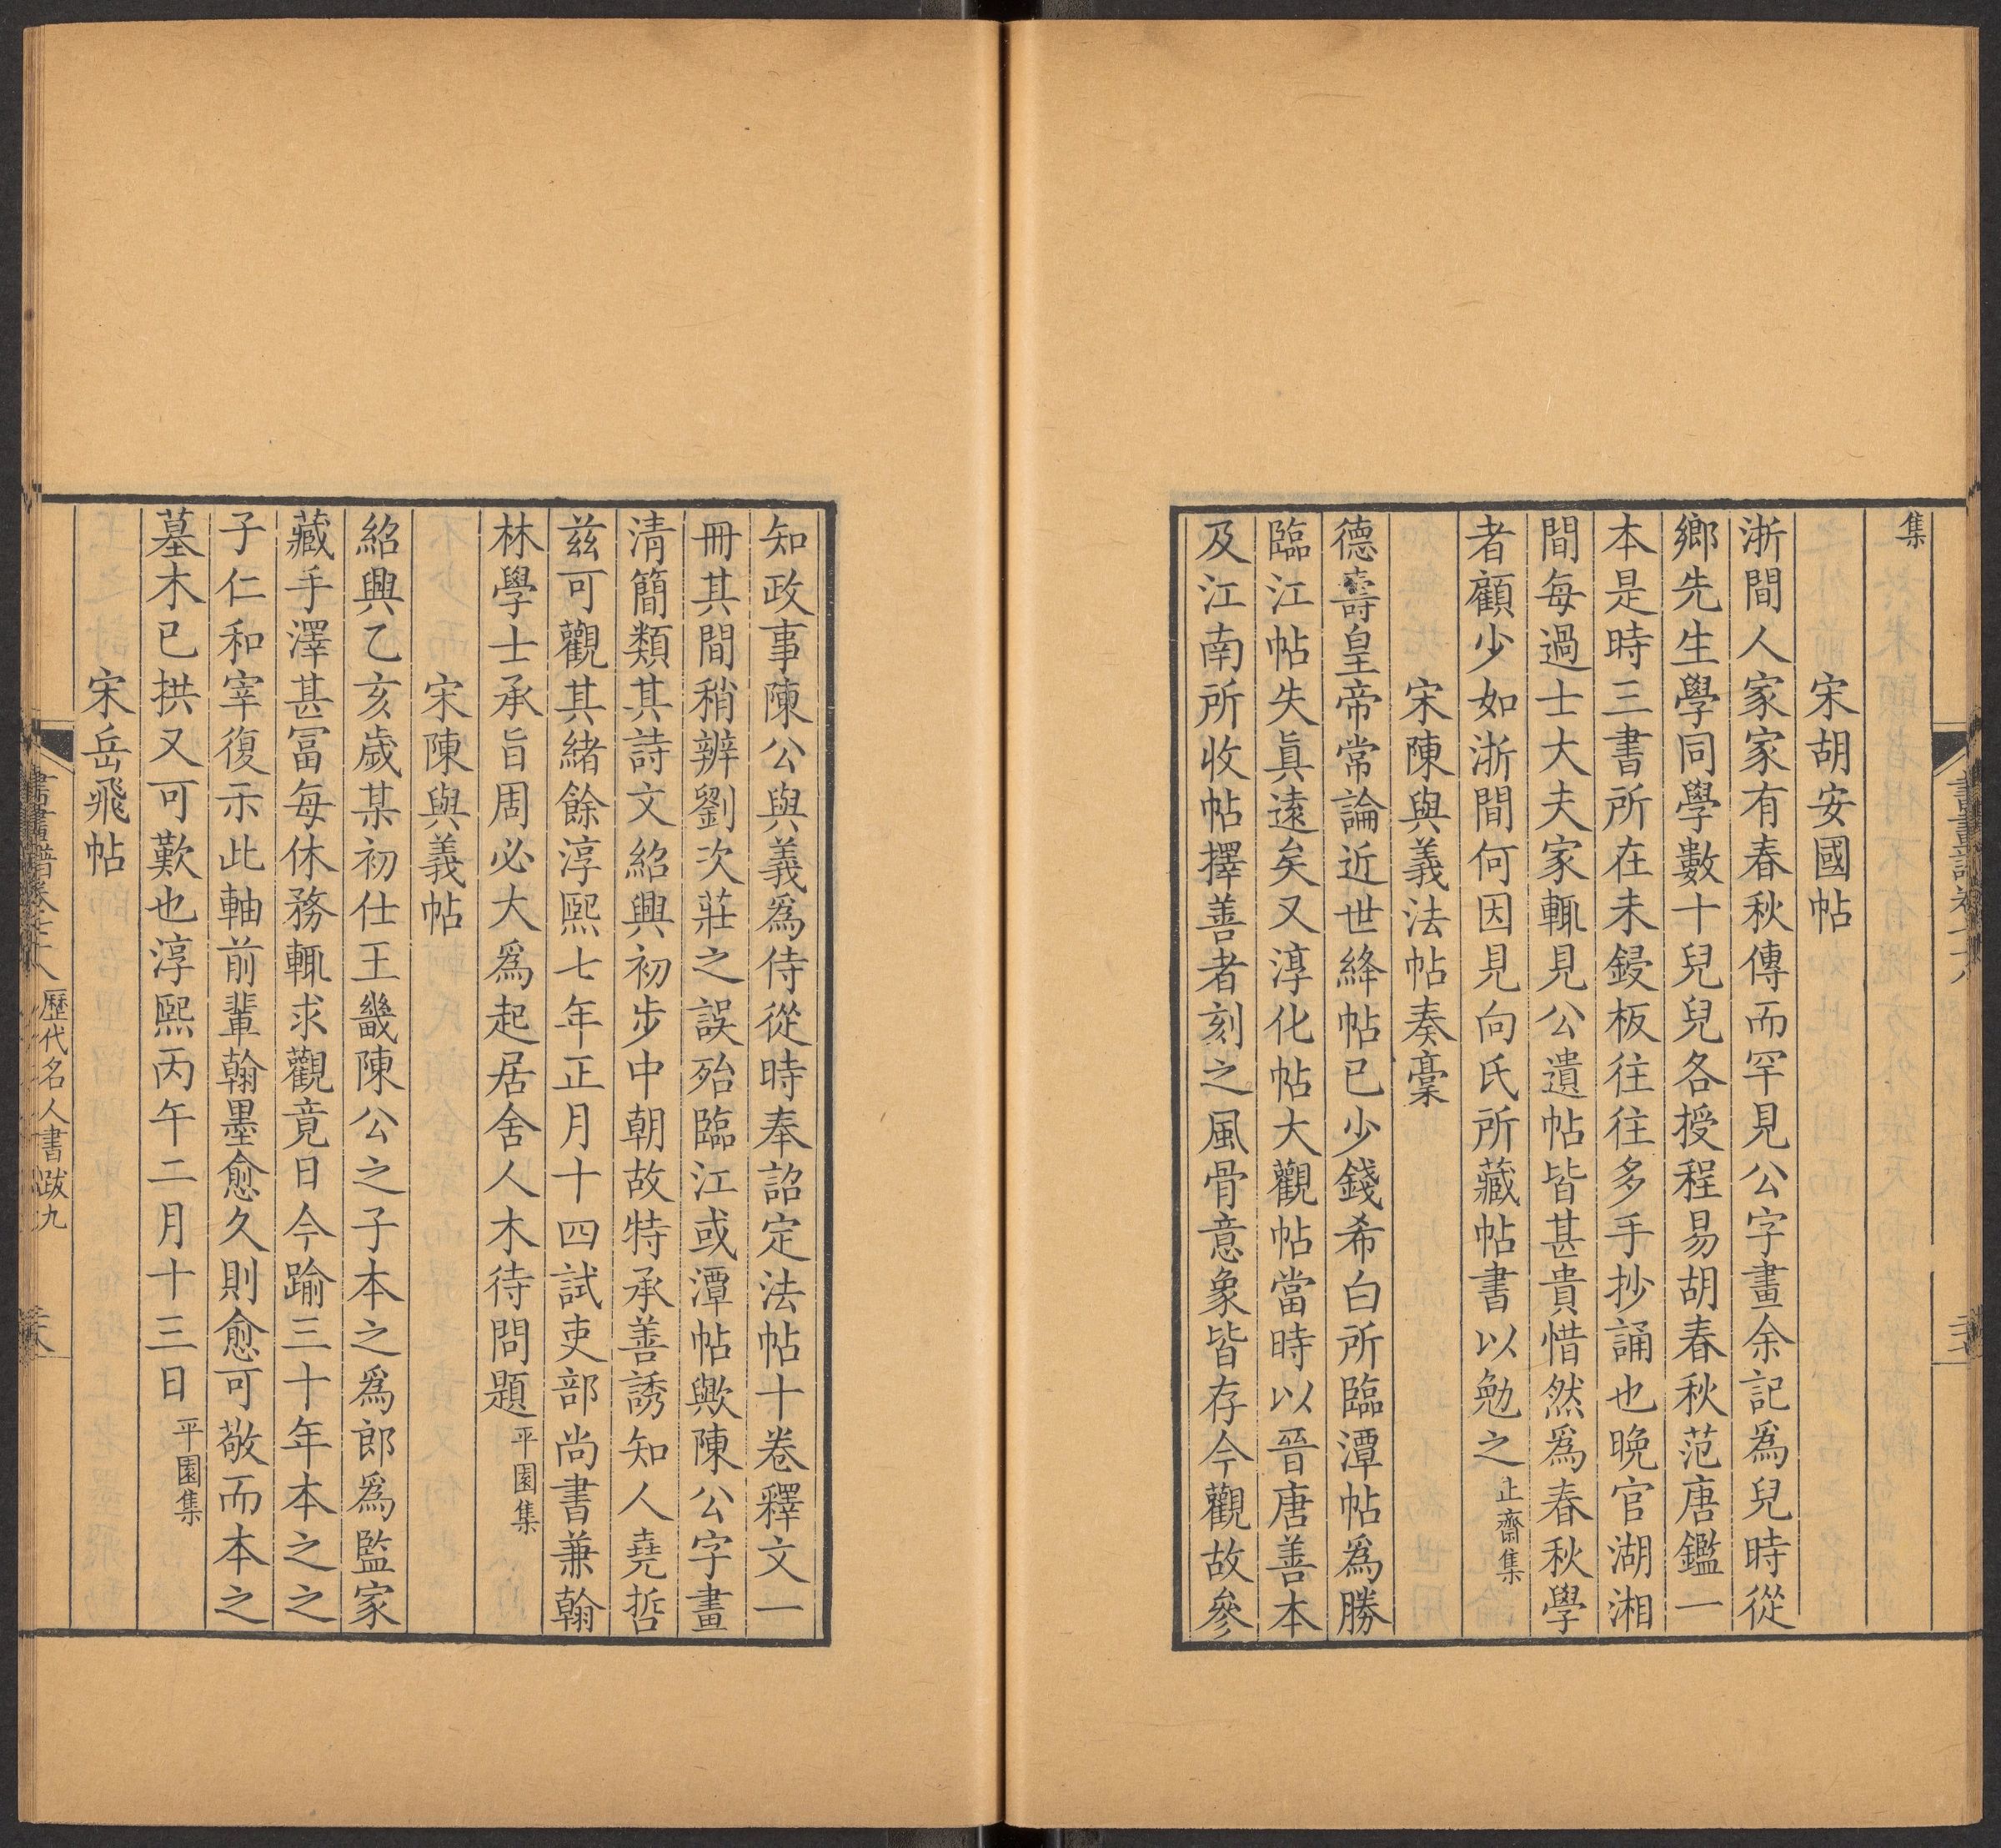 集
宋胡安國帖
浙間人家家有春秋傳而罕見公字畫余記爲兒時從
鄉先生學同學數十兒兒各授程易胡春秋范唐鑑一
本是時三書所在未鋟板往往多手抄誦也晚官湖湘
間每過士大夫家輒見公遺帖皆甚貴惜然爲春秋學
者顧少如浙間何因見向氏所藏帖書以勉之止齋集
宋陳與義法帖奏稾
德壽皇帝常論近世絳帖已少錢希白所臨潭帖爲勝
臨江帖失眞遠矣又淳化帖大觀帖當時以晉唐善本
及江南所收帖擇善者刻之風骨意象皆存今觀故參
知政事陳公與義爲侍從時奉詔定法帖十卷釋文一
冊其間稍辨劉次莊之誤殆臨江或潭帖歟陳公字畫
清簡類其詩文紹興初步中朝故特承善誘知人堯哲
兹可觀其緒餘淳熙七年正月十四試吏部尚書兼翰
林學士承旨周必大爲起居舍人木待問題平園集
宋陳與義帖
紹興乙亥歲某初仕王畿陳公之子本之爲郎爲監家
藏手澤甚冨每休務輒求觀竟日今踰三十年本之之
子仁和宰復示此軸前輩翰墨愈久則愈可敬而本之
墓木已拱又可歎也淳熙丙午二月十三日平園集
宋岳飛帖
書畫譜卷七十八
歷代名人書跋九